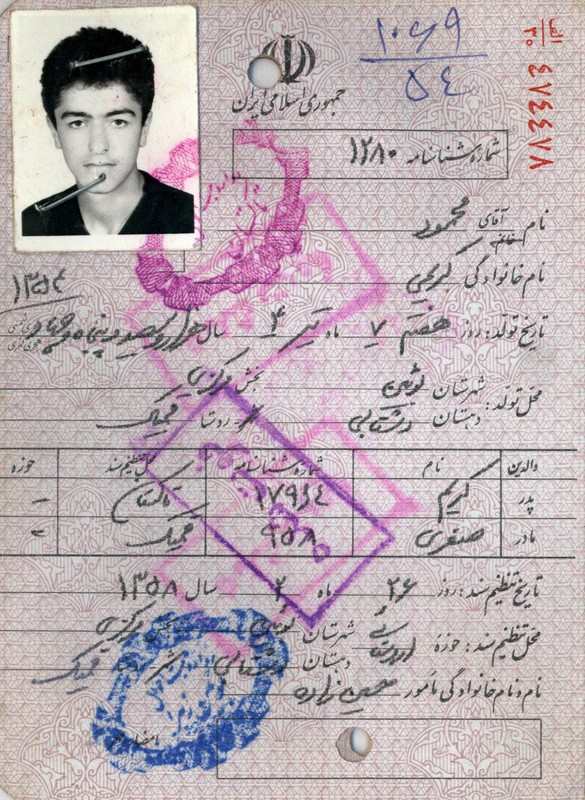 ۱۰۶۹
۵۴
الف
۲۰
۴۷۴۴۷۸
جمهوری اسلامی ایران
شماره شناسنامه ۱۲۸۰
نام آقای محمود
نام خانوادگی کریمی
۱۳۵۴
تاریخ تولد: روز هفتم ۷ ماه تیر ۴ سال هزار و سیصد و پنجاه و چهار
محل تولد: شهرستان بخش مرکزی
دهستان دشتابی روستا
والدین نام شماره شناسنامه محل تنظیم سند حوزه
پدر کریم ۱۷۹۶۴ تاکستان –
مادر صغری ۹۵۸
تاریخ تنظیم سند: روز ۲۶ ماه ۲ سال ۱۳۵۸
محل تنظیم سند: حوزه شهرستان بخش مرکزی
دهستان دشتابی
نام و نام خانوادگی مأمور حسین زاده